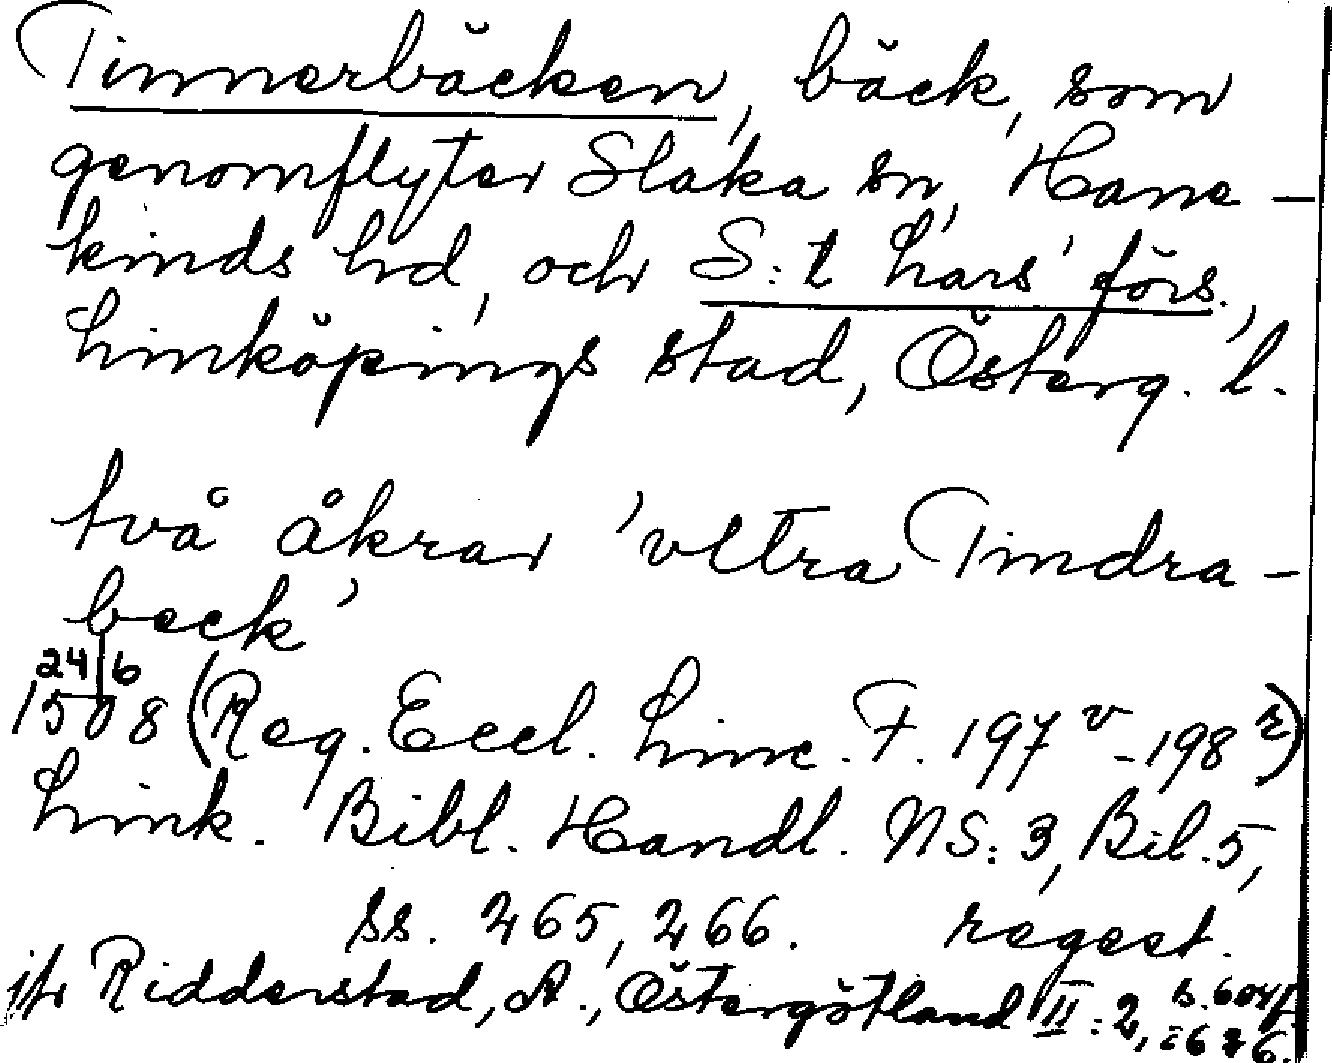 Tinnerbäcken, bäck, som
genomflyter Slaka sn, Hane-
kinds hd, och S:t Lars' förs.,
Linköpings stad, Österg. l.
två åkrar 'vltra Tindra-
beck'
24/6
1508 (Reg. Eccl. Linc. F. 197 v - 198 r)
Link. Bibl. Handl. NS: 3, Bil. 5,
ss. 265, 266. regest.
jfr Ridderstad, A., Östergötland II: 2, s. 604f